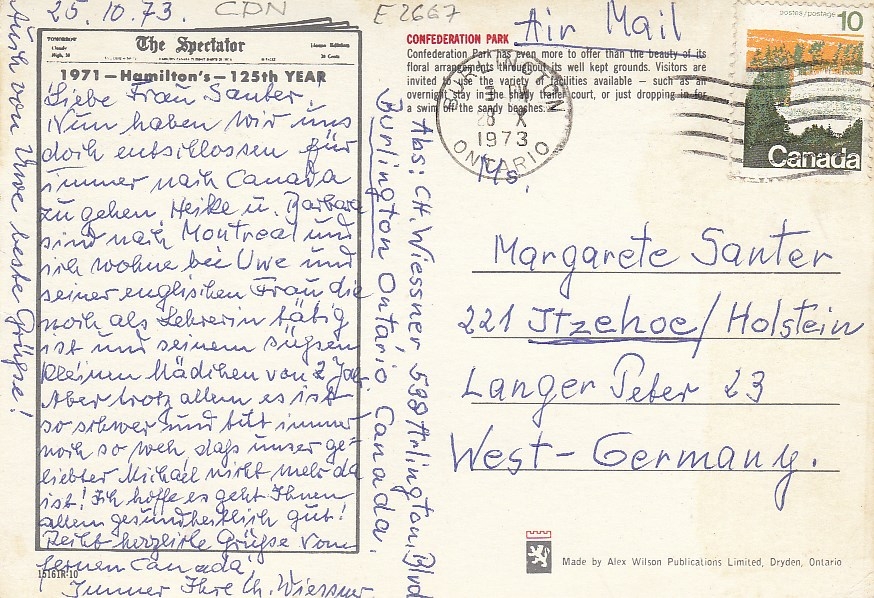 25.10.73.
CPN
E 2667
TOMORROW
The Spectator
1971—Hamilton's—125th YEAR
Liebe Frau Santer!
Nun haben wir uns
doch entschlossen für
immer nach Canada
zu gehen. Heike u. Barbara
sind nach Montreal und
ich wohne bei Uwe und
seiner englischen Frau die
noch als Lehrerin tätig
ist und seinem süßen
kleinen Mädchen von 2 Jahr.
Aber trotz allem es ist
so schwer und tut immer
noch so weh, daß unser ge-
liebter Michael nicht mehr da
ist! Ich hoffe es geht Ihnen
allen gesundheitlich gut!
Recht herzliche Grüße vom
fernen Canada!
Immer Ihre Ch. Wiessner
Auch von Uwe beste Grüße!
15161R-10
Abs: CH. Wiessner 598 Arlington, Blvd
Burlington Ontario Canada.
CONFEDERATION PARK
Confederation Park has even more to offer than the beauty of its
floral arrangements throughout its well kept grounds. Visitors are
invited to use the variety of facilities available — such as an
overnight stay in the shady trailer court, or just dropping in for
a swim off the sandy beaches.
Air Mail
BURLINGTON
28 X
1973
ONTARIO
postes/postage 10
Canada
Ms.
Margarete Santer
221 Itzehoe/Holstein
Langer Peter 23
West-Germany.
Made by Alex Wilson Publications Limited, Dryden, Ontario